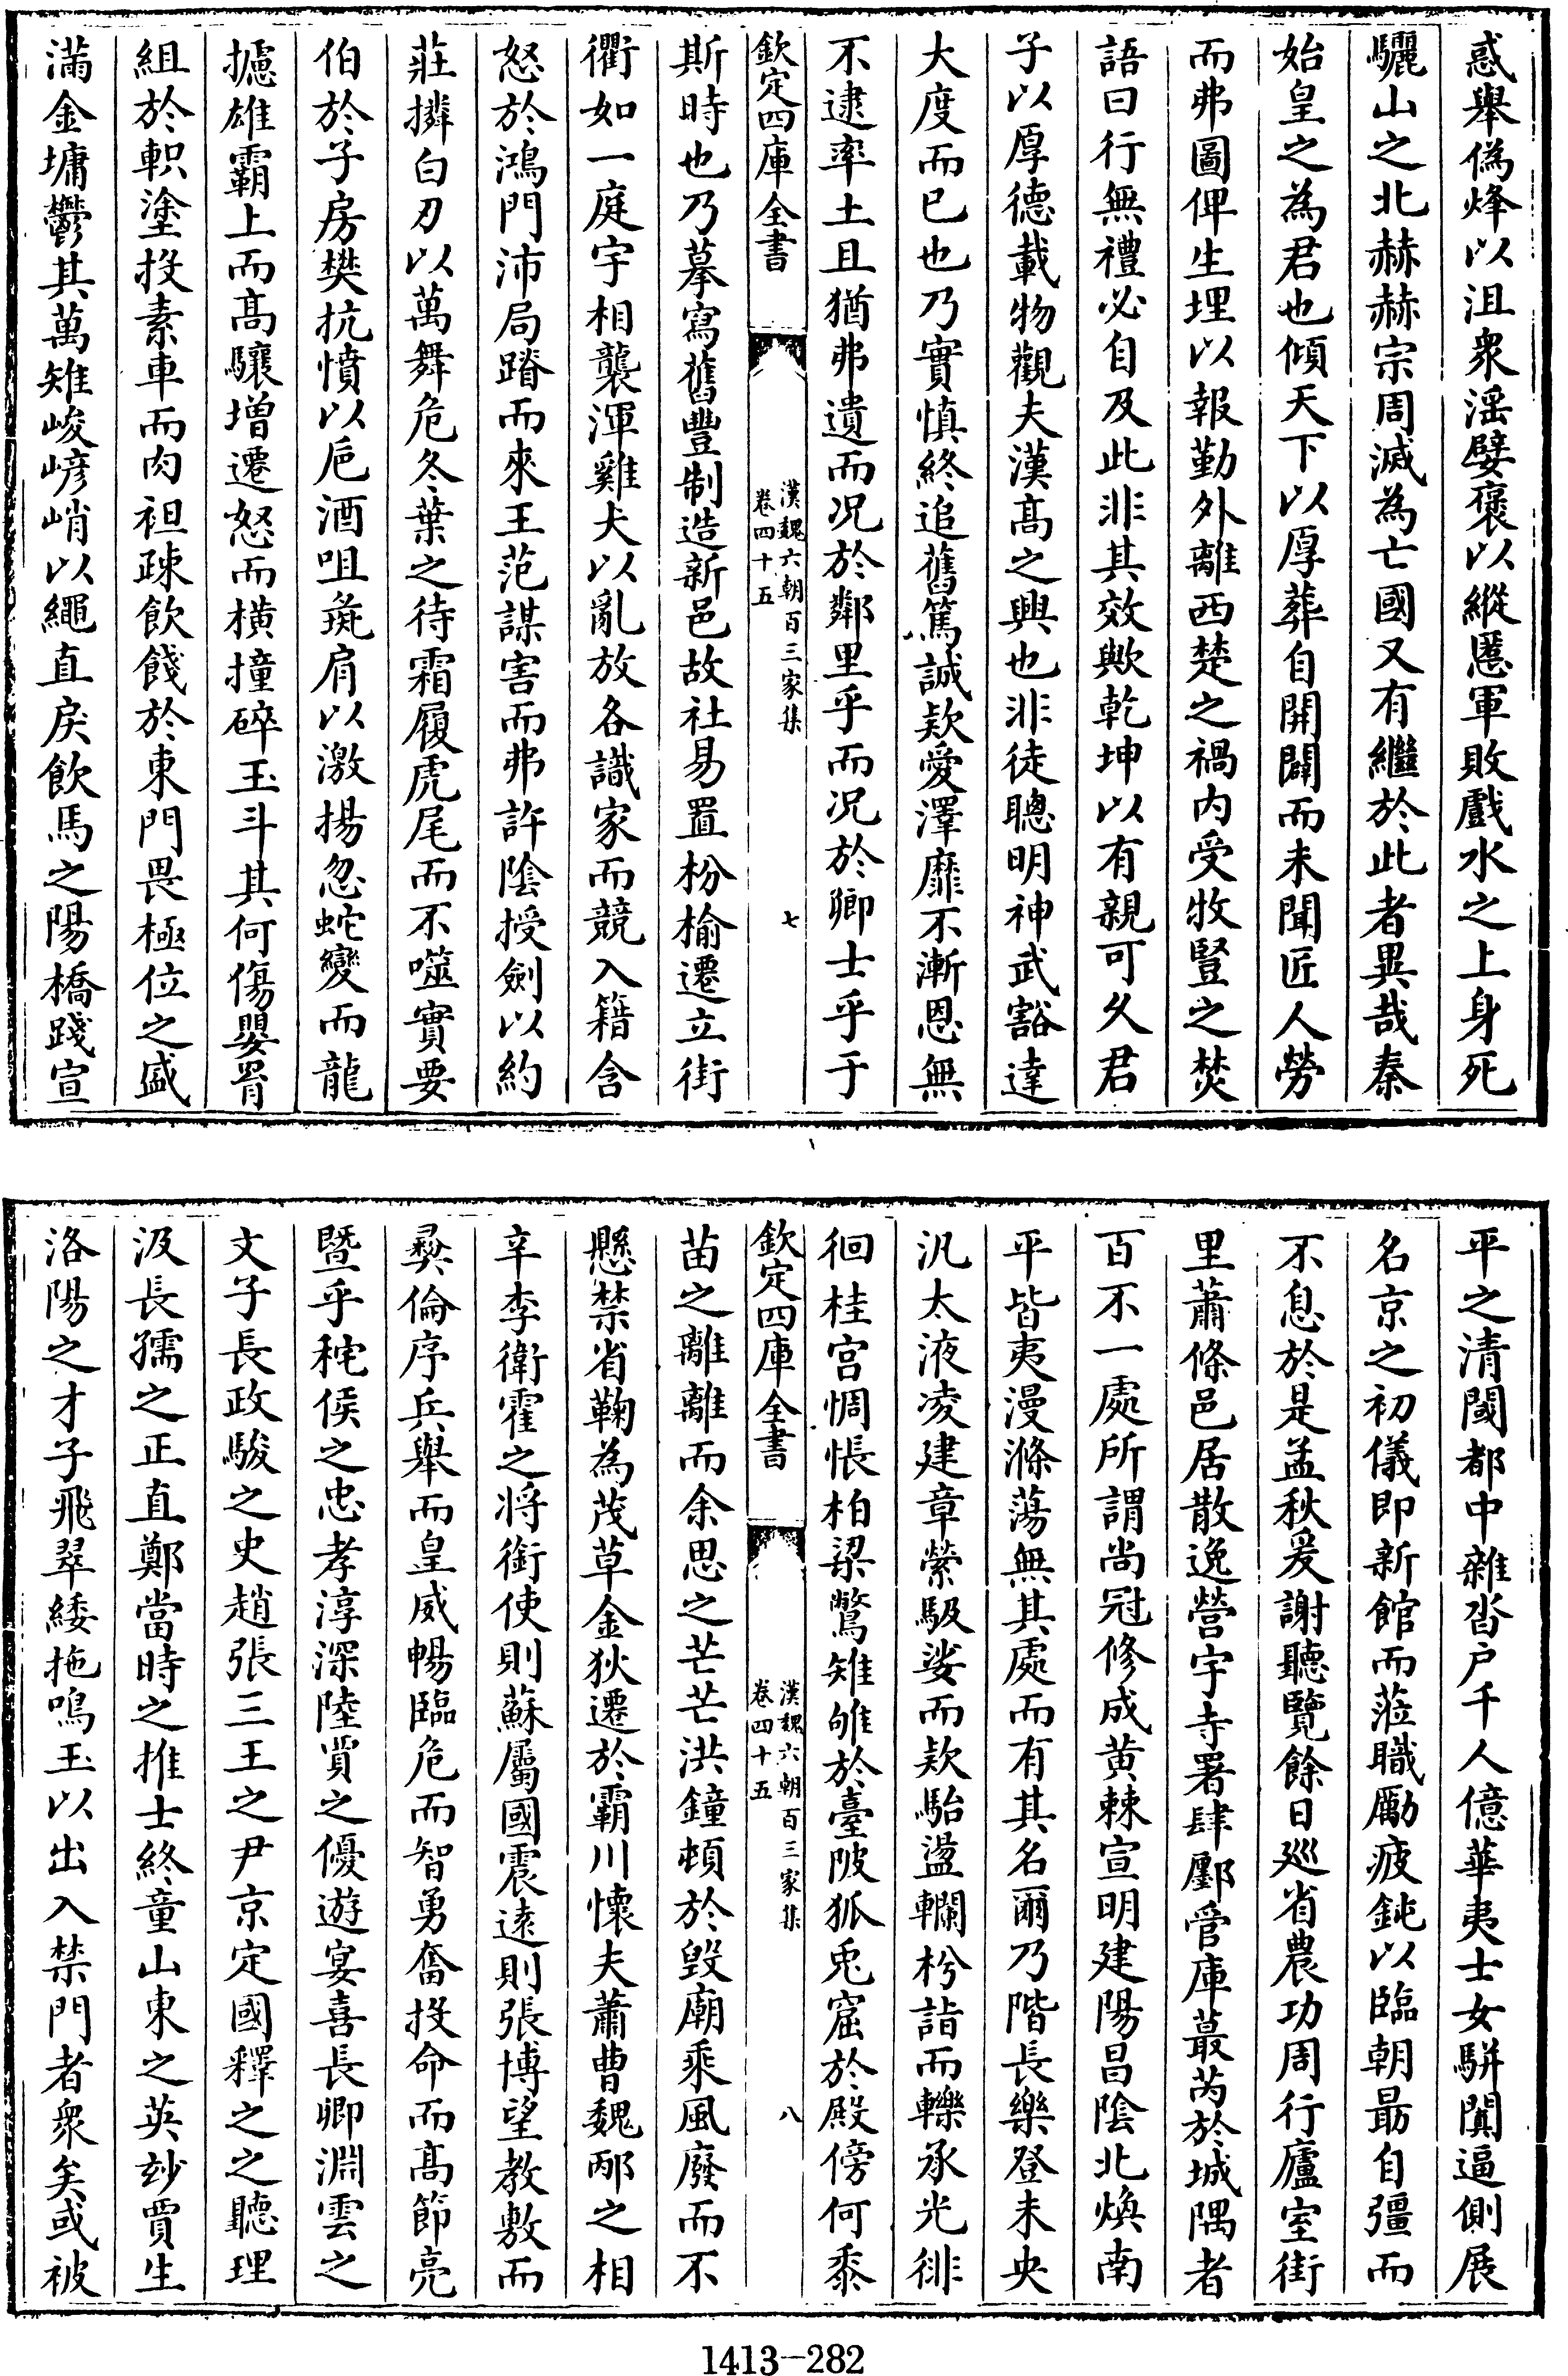 惑舉偽烽以沮衆淫嬖褒以縱慝軍敗戲水之上身死
驪山之北赫赫宗周滅為亡國又有繼於此者異哉秦
始皇之為君也傾天下以厚葬自開闢而未聞匠人勞
而弗圖俾生埋以報勤外離西楚之禍内受牧豎之焚
語曰行無禮必自及此非其效歟乾坤以有親可久君
子以厚德載物觀夫漢髙之興也非徒聰明神武豁達
大度而已也乃實慎終追舊篤誠欵愛澤靡不漸恩無
不逮率土且猶弗遺而况於鄰里乎而况於卿士乎于
欽定四庫全書
漢魏六朝百三家集
卷四十五
七
斯時也乃摹寫舊豐制造新邑故社易置枌榆遷立街
衢如一庭宇相襲渾雞犬以亂放各識家而競入籍含
怒於鴻門沛局蹐而來王范謀害而弗許陰授劍以約
莊撠白刃以萬舞危冬葉之待霜履虎尾而不噬實要
伯於子房樊抗憤以巵酒咀彘肩以激揚忽蛇變而龍
攄雄霸上而髙驤增遷怒而横撞碎玉斗其何傷嬰罥
組於軹塗投素車而肉袒踈飲餞於東門畏極位之盛
滿金墉鬱其萬雉峻嵃峭以繩直戾飲馬之陽橋踐宣
平之清閾都中雜沓户千人億華夷士女駢闐逼側展
名京之初儀即新館而蒞職勵疲鈍以臨朝朂自彊而
不息於是孟秋爰謝聽覽餘日廵省農功周行廬室街
里蕭條邑居散逸營宇寺署肆廛管庫蕞芮於城隅者
百不一處所謂尚冠修成黄棘宣明建陽昌陰北煥南
平皆夷漫滌蕩無其處而有其名爾乃階長樂登未央
汎太液凌建章縈馺娑而欵駘盪轥枍詣而轢承光徘
徊桂宫惆悵柏梁鷩雉雊於臺陂狐兎窟於殿傍何黍
欽定四庫全書
漢魏六朝百三家集
卷四十五
八
苗之離離而余思之芒芒洪鐘頓於毁廟乘風廢而不
懸禁省鞠為茂草金狄遷於霸川懷夫蕭曹魏邴之相
辛李衛霍之將銜使則蘇屬國震逺則張博望教敷而
彛倫序兵舉而皇威暢臨危而智勇奮投命而髙節亮
暨乎秺侯之忠孝淳深陸賈之優遊宴喜長卿淵雲之
文子長政駿之史趙張三王之尹京定國釋之之聽理
汲長孺之正直鄭當時之推士終童山東之英玅賈生
洛陽之才子飛翠緌拖鳴玉以出入禁門者衆矣或被
1413—282